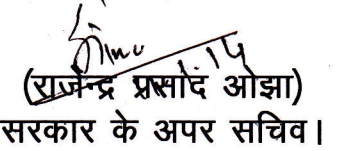 (राजेन्द्र प्रसाद ओझा)
सरकार के अपर सचिव।